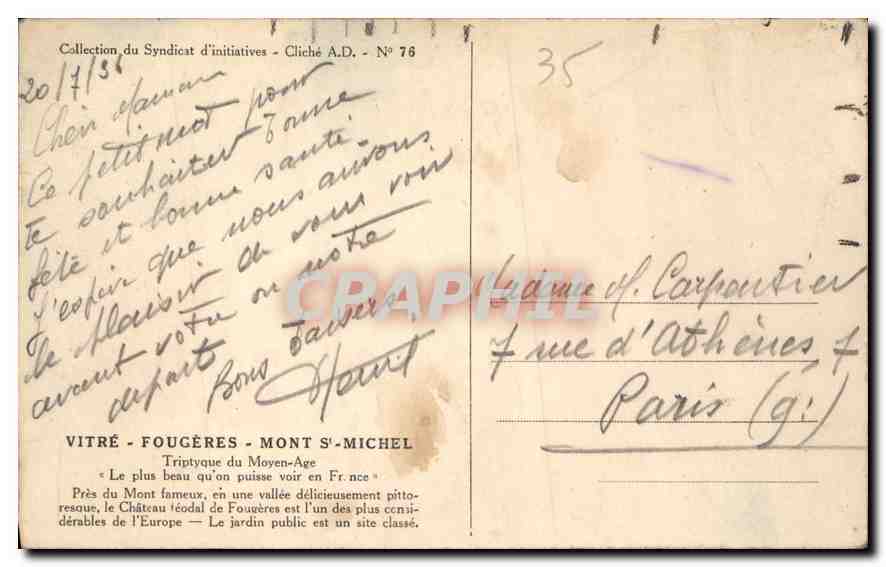 Collection du Syndicat d'initiatives - Cliché A.D. - N° 76
35
20/7/36
Chère Maman
Ce petit mot pour
te souhaiter bonne
fête et bonne santé.
J'espère que nous aurons
le plaisir de vous voir
avant votre ou notre
départ
Bons baisers
Henri
CPARHIL
Madame M. Carpentier
7 rue d'Athènes 7
Paris (9:
VITRÉ - FOUGÈRES - MONT St-MICHEL
Triptyque du Moyen-Age
« Le plus beau qu'on puisse voir en Fr nce »
Près du Mont fameux, en une vallée délicieusement pitto-
resque, le Château féodal de Fougères est l'un des plus consi-
dérables de l'Europe — Le jardin public est un site classé.